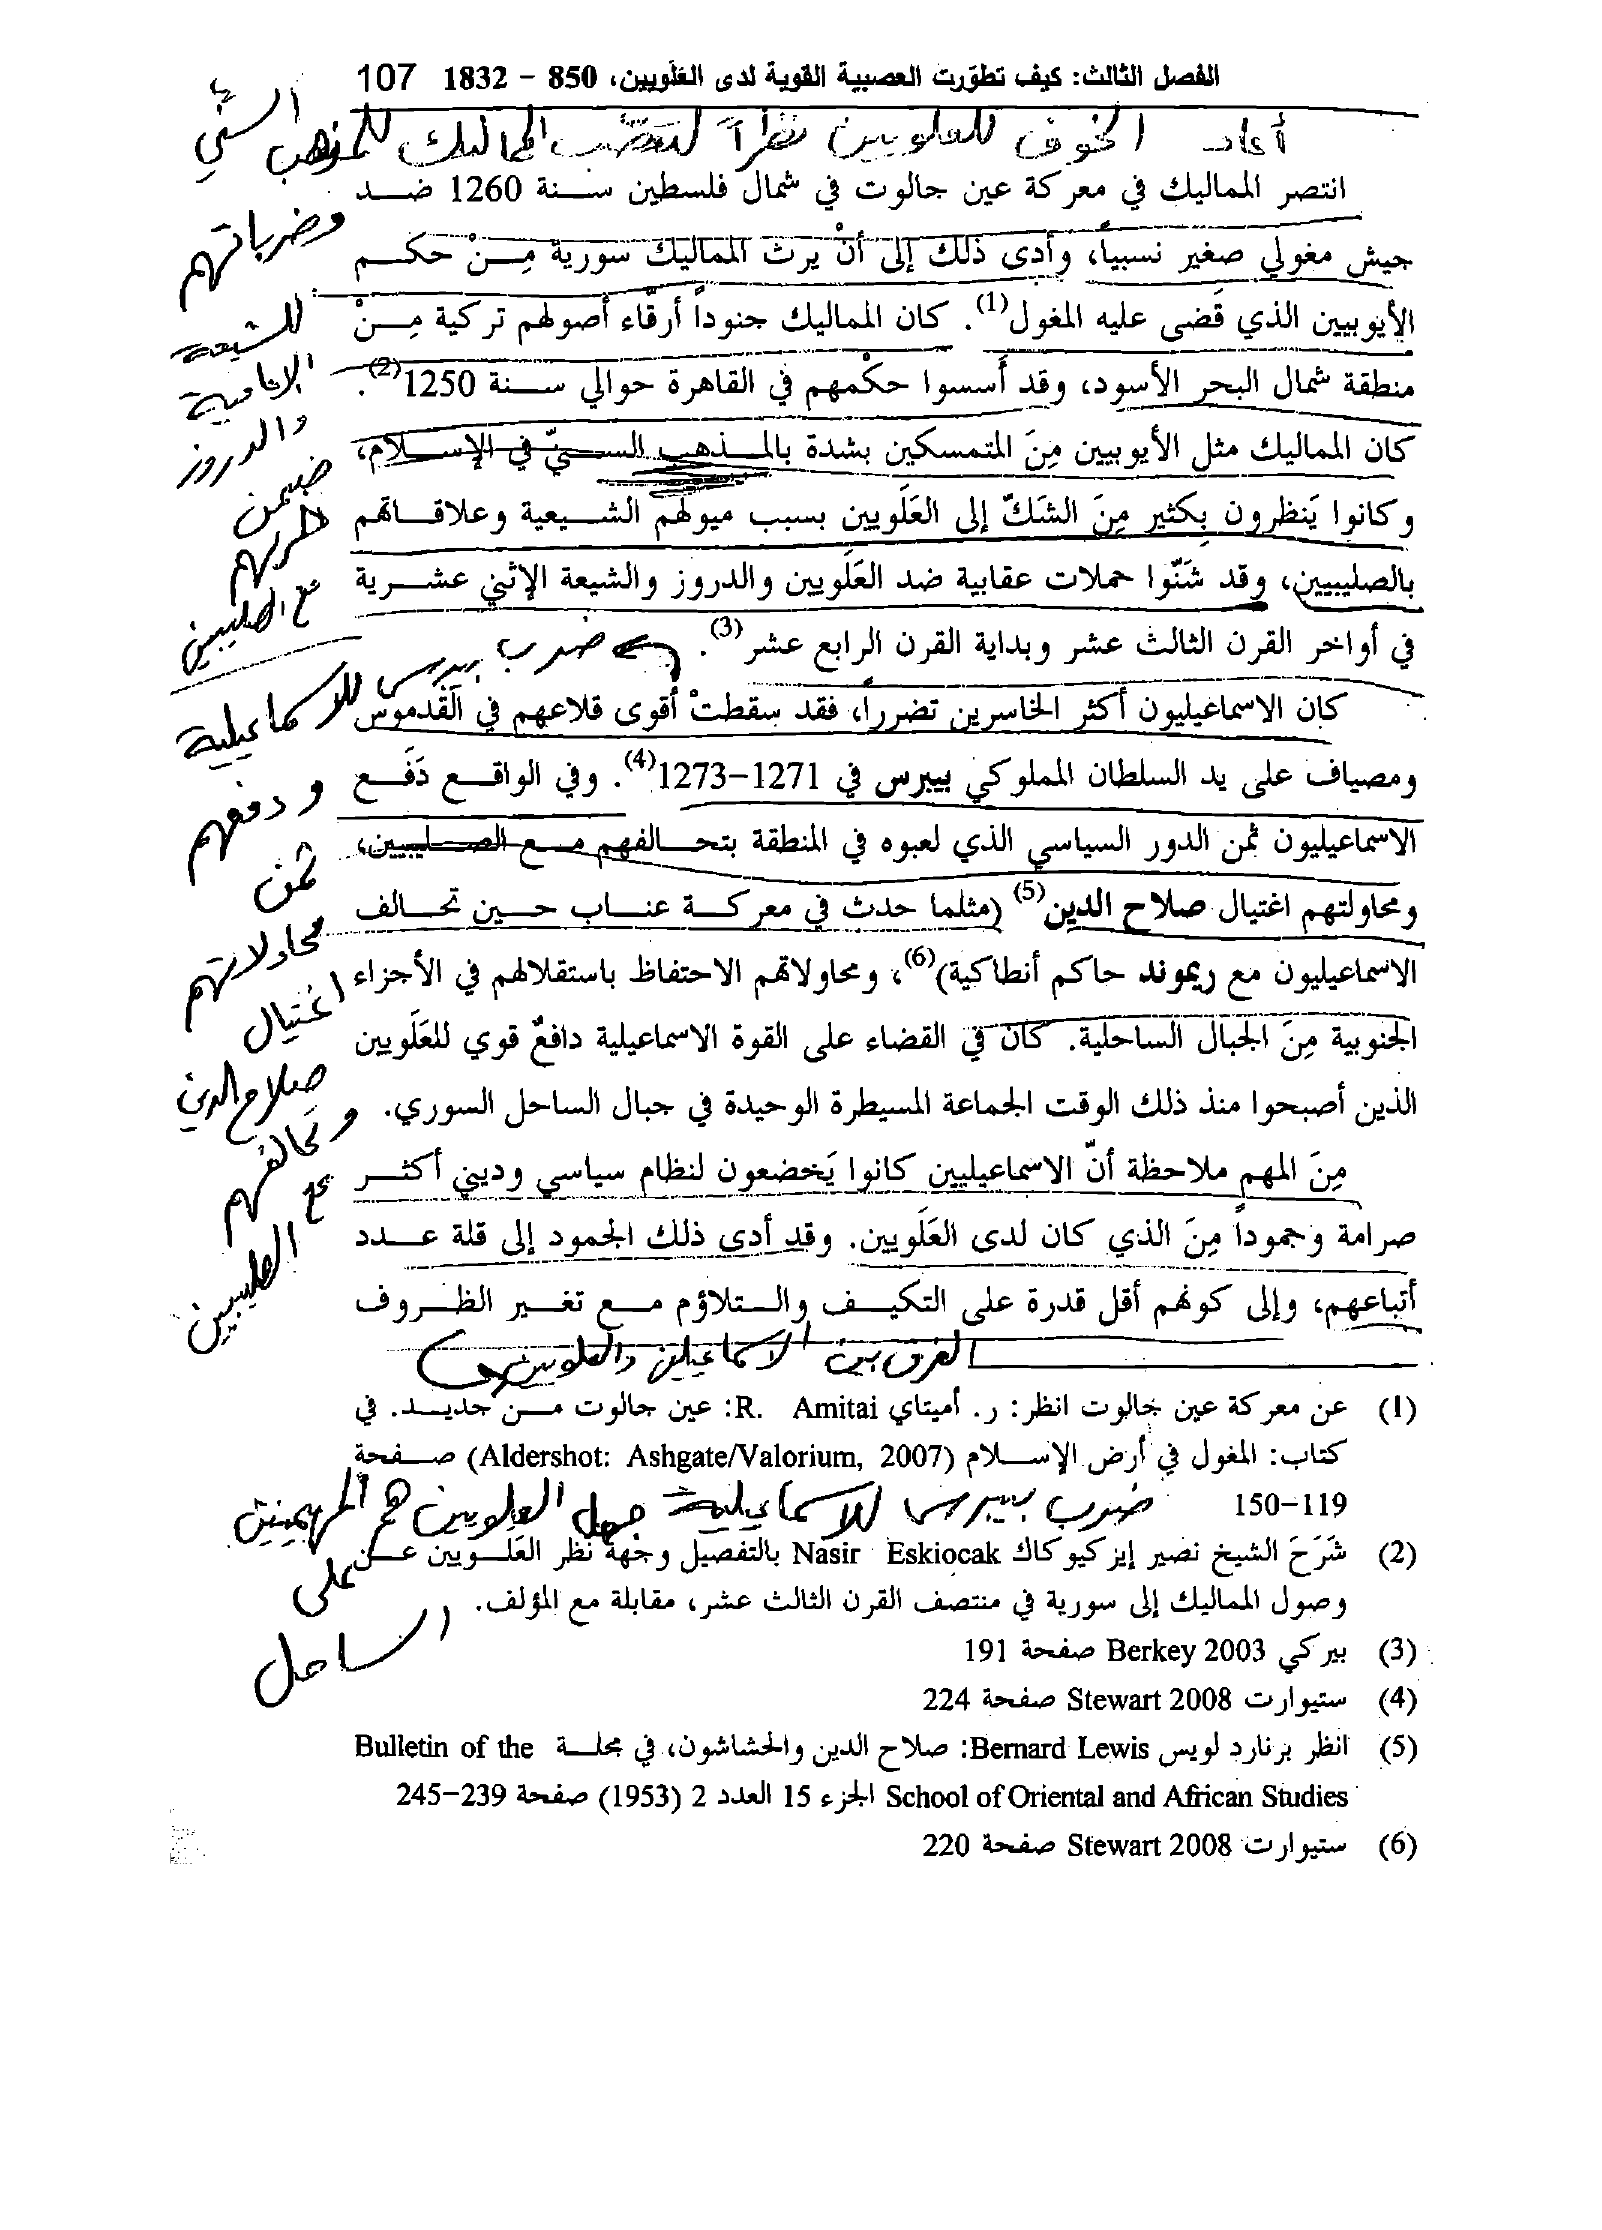 الفصل الثالث: كيف تطوّرت العصبية القوية لدى العَلَويين، 850 – 1832 107
أعاد الخوف للعلويين نظراً لتعصّب المماليك للمذهب السنّي
انتصر المماليك في معركة عين جالوت في شمال فلسطين سنة 1260 ضد
جيش مغولي صغير نسبياً، وأدى ذلك إلى أنْ يرث المماليك سورية مِنْ حكم
الأيوبيين الذي قَضى عليه المغول(1). كان المماليك جنوداً أرقّاء أصولهم تركية مِنْ
منطقة شمال البحر الأسود، وقد أَسسوا حكْمهم في القاهرة حوالي سنة 1250(2).
كان المماليك مثل الأيوبيين مِنَ المتمسكين بشدة بالمذهب السنيّ في الإسلام،
وكانوا يَنظرون بِكثير مِنَ الشَكّ إلى العَلَويين بسبب ميولهم الشيعية وعلاقاتهم
بالصليبيين، وقد شَنّوا حملات عقابية ضد العَلَويين والدروز والشيعة الإثني عشرية
في أواخر القرن الثالث عشر وبداية القرن الرابع عشر(3).
كان الاسماعيليون أكثر الخاسرين تضرراً، فقد سقطتْ أقوى قلاعهم في القَدموس
ومصياف على يد السلطان المملوكي بيبرس في 1271-1273(4). وفي الواقع دَفَع
الاسماعيليون ثمن الدور السياسي الذي لعبوه في المنطقة بتحالفهم مع الصليبيين،
ومحاولتهم اغتيال صلاح الدين(5) (مثلما حدث في معركة عناب حين تحالف
الاسماعيليون مع ريموند حاكم أنطاكية)(6)، ومحاولاتهم الاحتفاظ باستقلالهم في الأجزاء
الجنوبية مِنَ الجبال الساحلية. كان في القضاء على القوة الاسماعيلية دافعٌ قوي للعَلَويين
الذين أصبحوا منذ ذلك الوقت الجماعة المسيطرة الوحيدة في جبال الساحل السوري.
مِنَ المهم ملاحظة أنّ الاسماعيليين كانوا يَخضعون لنظام سياسي وديني أكثر
صرامة وجموداً مِنَ الذي كان لدى العَلَويين. وقد أدى ذلك الجمود إلى قلة عدد
أتباعهم، وإلى كونهم أقل قدرة على التكيف والتلاؤم مع تغير الظروف
الفرق بين الاسماعيليين والعلويين
وضرباتهم
للشيعة
الإمامية
والدروز
ضمن
حربهم
مع الصليبيين
ضرب بيبرس للاسماعيلية
ودفعهم
ثمن
محاولاتهم
اغتيال
صلاح الدين
وتحالفهم
مع
الصليبيين
(1) عن معركة عين جالوت انظر: ر. أميتاي R. Amitai: عين جالوت من جديد. في
كتاب: المغول في أرض الإسلام (Aldershot: Ashgate/Valorium, 2007) صفحة
119-150
ضرب بيبرس للاسماعيلية جعل العلويين هم المهيمنين
على
الساحل
(2) شَرَحَ الشيخ نصير إيزكيوكاك Nasir Eskiocak بالتفصيل وجهة نظر العَلَويين عن
وصول المماليك إلى سورية في منتصف القرن الثالث عشر، مقابلة مع المؤلف.
(3) بيركي Berkey 2003 صفحة 191
(4) ستيوارت Stewart 2008 صفحة 224
(5) انظر برنارد لويس Bernard Lewis: صلاح الدين والحشاشون، في مجلة Bulletin of the
School of Oriental and African Studies الجزء 15 العدد 2 (1953) صفحة 239-245
(6) ستيوارت Stewart 2008 صفحة 220